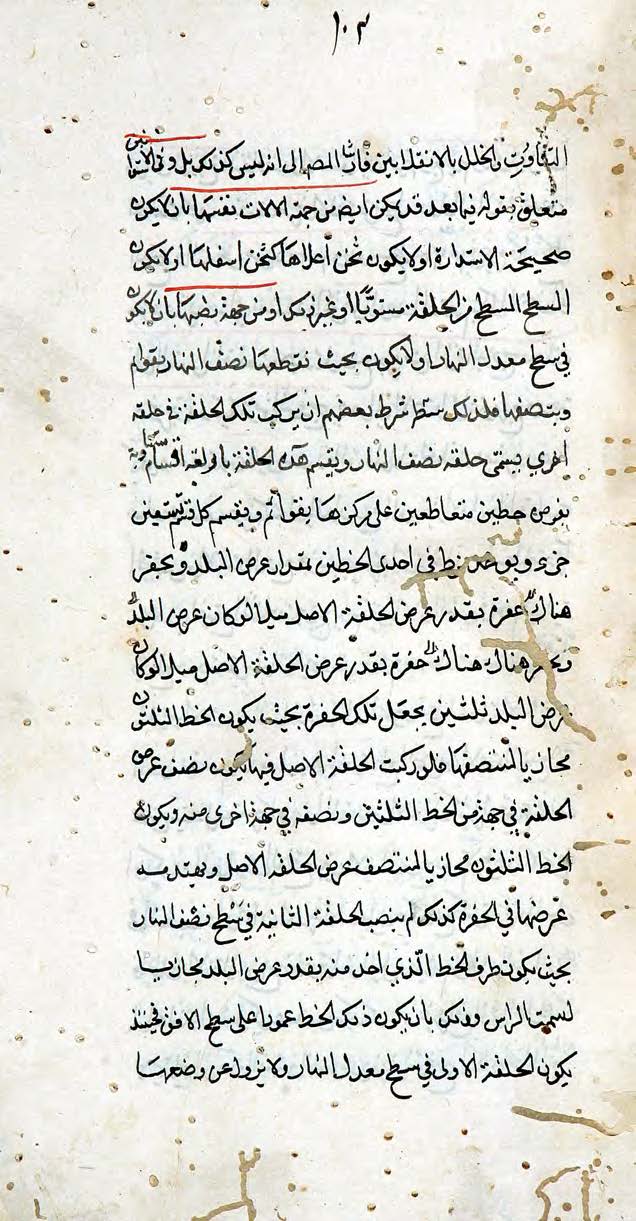 ١٠٣
التفاوت والخلل بالانقلابين فاشار المصر الى انه ليس كذلك بل وفى الاستوائين
متعلق بقوله فيما بعد قد يكن ايضا من جهة الالات نفسها بان لا يكون
صحيحة الاستدارة او لا يكون ثخن اعلاها كثخن اسفلها او لا يكون
السطح المسطح من الحلقة مستويًا او غير ذلك او من جهة نصبها بان لا يكون
فى سطح معدل النهار او لا يكون بحيث نقطعها نصف النهار بقوام
وينصفها فلذلك شرط بعضهم ان يركب تلك الحلقة فى حلقه
اخري يسمى حلقه نصف النهار ويقسم هذه الحلقة باربعة اقسام متساوية
بفرض خطين متقاطعين على مركزها بقوائم ويقسم كل قسم بتسعين
جزء ويوخذ فى احدى الخطين بمقدار عرض البلد ويحفر
هناك حفرة بقدر عرض الحلقة الاصل ميلا لو كان عرض البلد
هناك هناك حفرة بقدر عرض الحلقة الاصل ميلا لو كان
عرض البلد ثلثين يجعل تلك الحفرة بحيث يكون الخط الثلثون
محازيا لمنتصفها فلو ركبت الحلقة الاصل فيها يكون نصف عرض
الحلقة فى جهة من الخط الثلثين ونصفه فى جهة اخرى منه ويكون
الخط الثلثون محازيا لمنتصف عرض الحلقه الاصل
عرضها فى الحفرة كذلك ثم ينصب الحلقة الثانية فى سطح نصف النهار
بحيث يكون طرف الخط الذي اخذ منه بقدر عرض البلد محازيا
لسمت الراس وذلك بان يكون ذلك الخط عمودا على سطح الافق فحينئذ
يكون الحلقة الاولى فى سطح معدل النهار ولا يزول عن وضعها